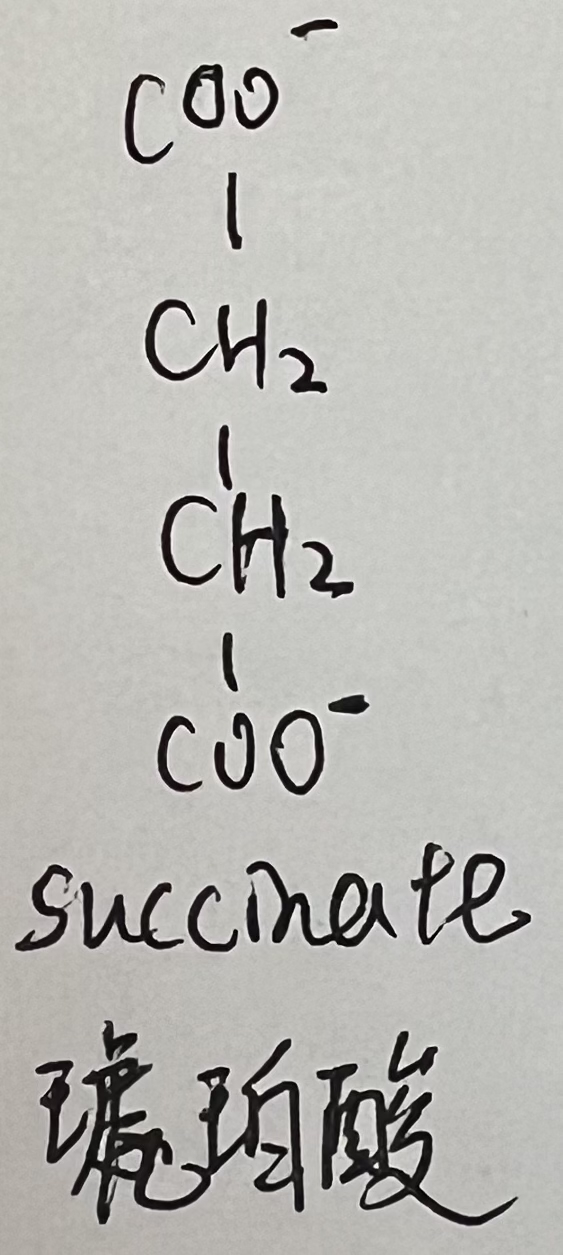 COO⁻
|
CH₂
|
CH₂
|
COO⁻
succinate
琥珀酸